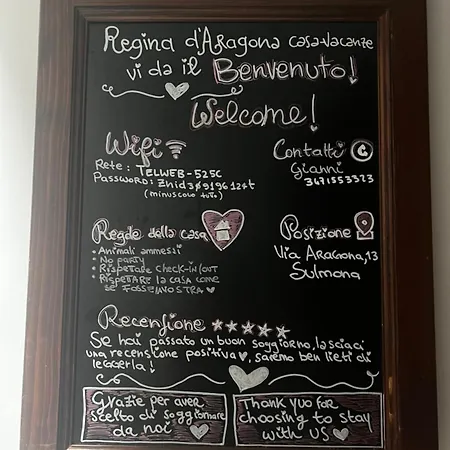 Regina d'Aragona casa-vacanze
vi da il Benvenuto!
Welcome!
Wifi
Rete: TELWEB-525C
Password:
(minuscolo tutto)
Contatti
Gianni
3471553373
Regole della casa
• Animali ammessi
• No party
• Rispettare check-in/out
• Rispettare la casa come
se fosse vostra
Posizione
Via Aragona, 13
Sulmona
Recensione
Se hai passato un buon soggiorno, lasciaci
una recensione positiva, saremo ben lieti di
leggerla!
Grazie per aver
scelto di soggiornare
da noi
Thank you for
choosing to stay
with us